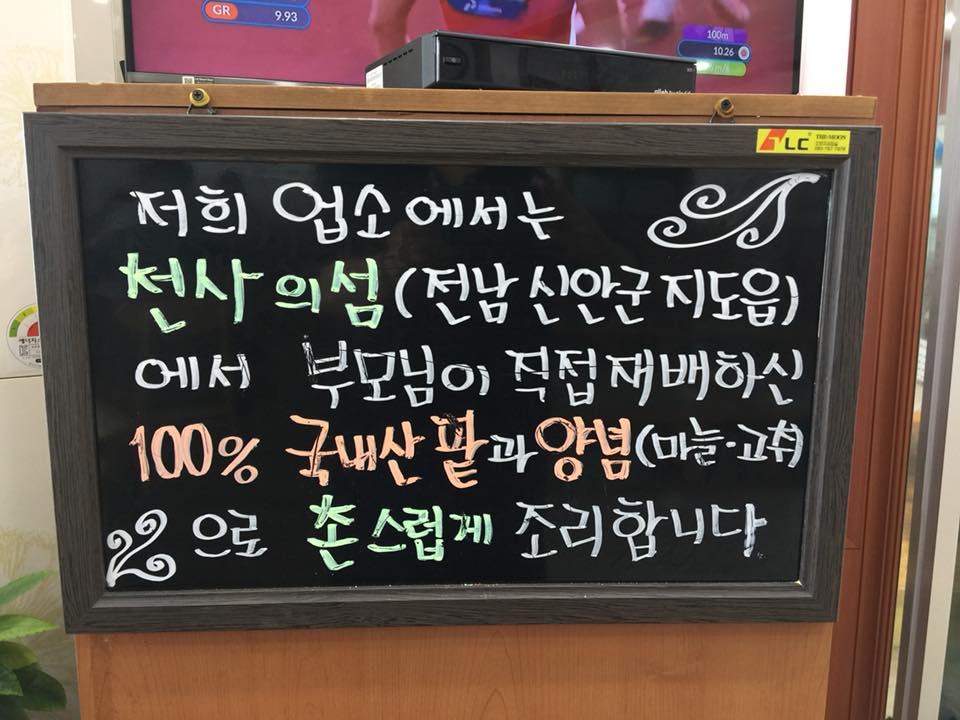 GR 9.93
100m
10.26
저희 업소에서는
천사의섬(전남 신안군 지도읍)
에서 부모님이 직접 재배하신
100% 국내산 팥과 양념(마늘·고취)
으로 촌스럽게 조리합니다
TLC THE-MOON